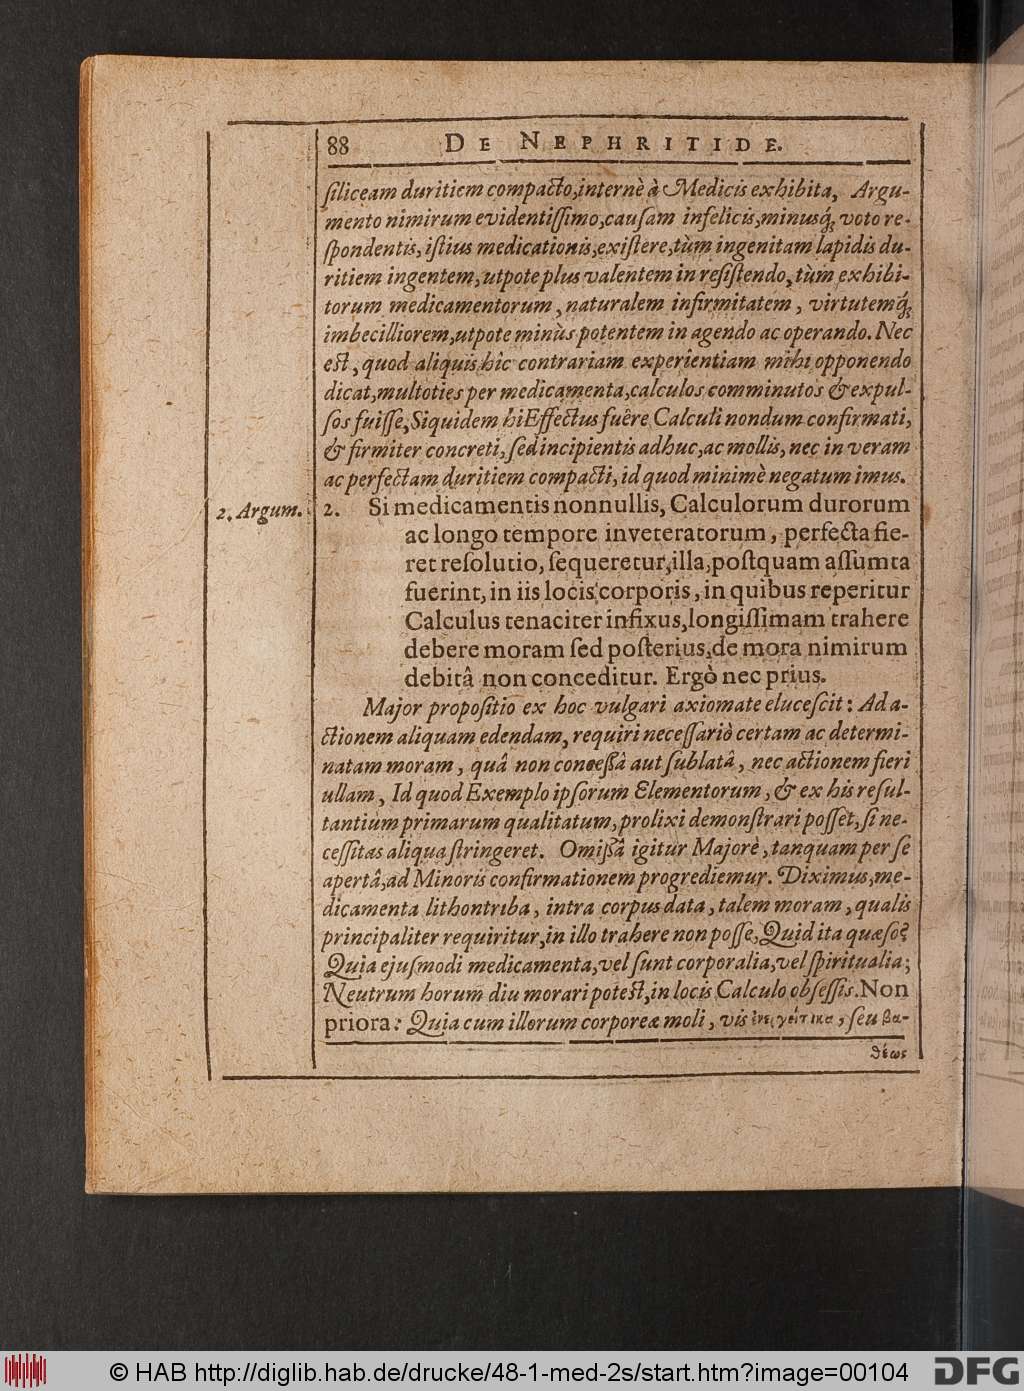 88 DE NEPHRITIDE.
siliceam duritiem compacto, internè à Medicis exhibita, Argu-
mento nimirum evidentissimo, causam infelicis, minusq́; voto re-
spondentis, istius medicationis, existere, tùm ingenitam lapidis du-
ritiem ingentem, utpote plus valentem in resistendo, tùm exhibi-
torum medicamentorum, naturalem infirmitatem, virtutemq́;
imbecilliorem, utpote minùs potentem in agendo ac operando. Nec
est, quod aliquis hîc contrariam experientiam mihi opponendo
dicat, multoties per medicamenta, calculos comminutos & expul-
sos fuisse, Siquidem hi Effectus fuêre Calculi nondum confirmati,
& firmiter concreti, sed incipientis adhuc, ac mollis, nec in veram
ac perfectam duritiem compacti, id quod minimè negatum imus.
2. Argum.
2. Si medicamentis nonnullis, Calculorum durorum
ac longo tempore inveteratorum, perfecta fie-
ret resolutio, sequeretur, illa, postquam assumta
fuerint, in iis locis corporis, in quibus reperitur
Calculus tenaciter infixus, longissimam trahere
debere moram sed posterius, de mora nimirum
debitâ non conceditur. Ergò nec prius.
Major propositio ex hoc vulgari axiomate elucescit: Ad a-
ctionem aliquam edendam, requiri necessariò certam ac determi-
natam moram, quâ non concessâ aut sublatâ, nec actionem fieri
ullam, Id quod Exemplo ipsorum Elementorum, & ex his resul-
tantium primarum qualitatum, prolixi demonstrari posset, si ne-
cessitas aliqua stringeret. Omissâ igitur Majorè, tanquam per se
apertâ, ad Minoris confirmationem progrediemur. Diximus, me-
dicamenta lithontriba, intra corpus data, talem moram, qualis
principaliter requiritur, in illo trahere non posse, Quid ita quæso?
Quia ejusmodi medicamenta, vel sunt corporalia, vel spiritualia;
Neutrum horum diu morari potest, in locis Calculo obsessis. Non
priora: Quia cum illorum corporeæ moli, vis ἐνεργεῖτικα, seu βα-
θέως
© HAB http://diglib.hab.de/drucke/48-1-med-2s/start.htm?image=00104
DFG